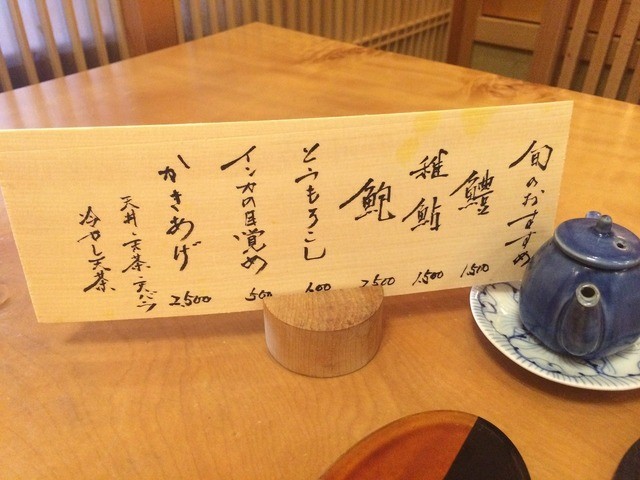 旬のおすすめ
鱧 1,500
稚鮎 1,500
鮑 2,500
とうもろこし 600
インカの目覚め 500
かきあげ 2,500
天丼・天茶・天バラ
冷やし天茶